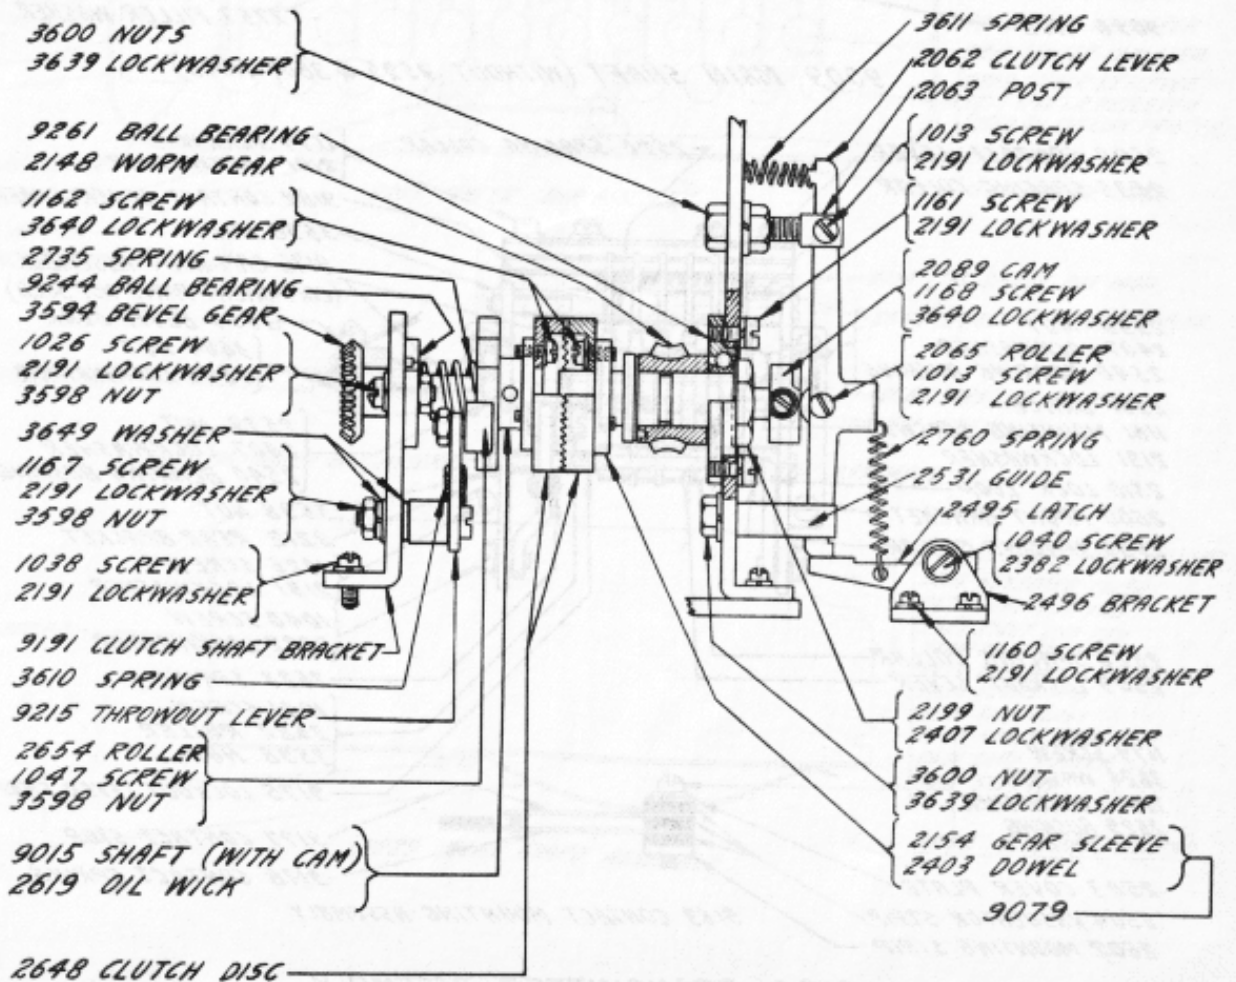 3600 NUTS
3639 LOCKWASHER
9261 BALL BEARING
2148 WORM GEAR
1162 SCREW
3640 LOCKWASHER
2735 SPRING
9244 BALL BEARING
3594 BEVEL GEAR
1026 SCREW
2191 LOCKWASHER
3598 NUT
3649 WASHER
1167 SCREW
2191 LOCKWASHER
3598 NUT
1038 SCREW
2191 LOCKWASHER
9191 CLUTCH SHAFT BRACKET
3610 SPRING
9215 THROWOUT LEVER
2654 ROLLER
1047 SCREW
3598 NUT
9015 SHAFT (WITH CAM)
2619 OIL WICK
2648 CLUTCH DISC
3611 SPRING
2062 CLUTCH LEVER
2063 POST
1013 SCREW
2191 LOCKWASHER
1161 SCREW
2191 LOCKWASHER
2089 CAM
1168 SCREW
3640 LOCKWASHER
2065 ROLLER
1013 SCREW
2191 LOCKWASHER
2760 SPRING
2531 GUIDE
2495 LATCH
1040 SCREW
2382 LOCKWASHER
2496 BRACKET
1160 SCREW
2191 LOCKWASHER
2199 NUT
2407 LOCKWASHER
3600 NUT
3639 LOCKWASHER
2154 GEAR SLEEVE
2403 DOWEL
9079